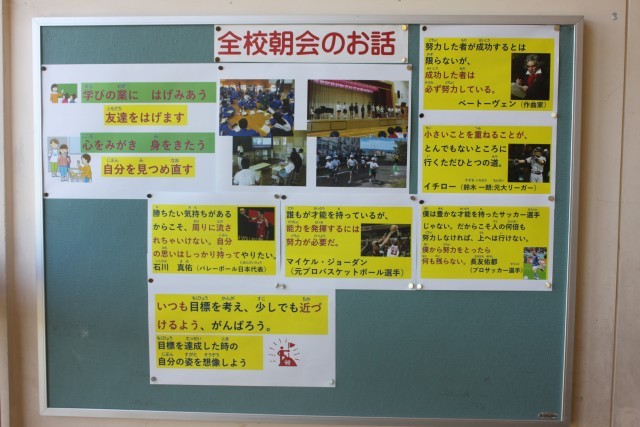 全校朝会のお話
学びの業に　はげみあう
友達をはげます
心をみがき　身をきたう
自分を見つめ直す
努力した者が成功するとは
限らないが、
成功した者は
必ず努力している。
ベートーヴェン（作曲家）
小さいことを重ねることが、
とんでもないところに
行くただひとつの道。
イチロー（鈴木 一朗:元大リーガー）
勝ちたい気持ちがある
からこそ、周りに流さ
れちゃいけない。自分
の思いはしっかり持ってやりたい。
石川　真佑（バレーボール日本代表）
誰もが才能を持っているが、
能力を発揮するには
努力が必要だ。
マイケル・ジョーダン
（元プロバスケットボール選手）
僕は豊かな才能を持ったサッカー選手
じゃない。だからこそ人の何倍も
努力しなければ、上へは行けない。
僕から努力をとったら
何も残らない。長友佑都
（プロサッカー選手）
いつも目標を考え、少しでも近づ
けるよう、がんばろう。
目標を達成した時の
自分の姿を想像しよう